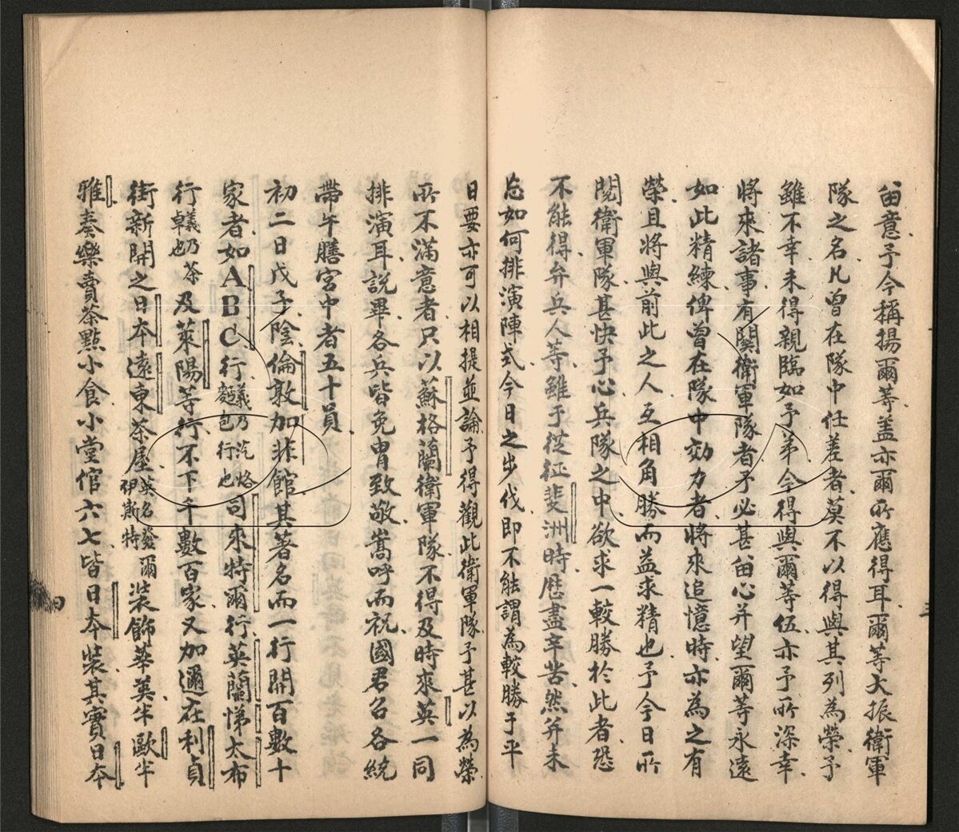 畱意予今稱揚爾等盖亦爾所應得耳爾等大振衛軍
隊之名凡曾在隊中任差者莫不以得與其列為榮予
雖不幸未得親臨如予弟今得與爾等伍亦予所深幸
將來諸事有関衛軍隊者予必甚畱心并望爾等永遠
如此精練俾曾在隊中効力者將來追憶時亦為之有
榮且將與前此之人互相角勝而益求精也予今日所
閱衛軍隊甚快予心兵隊之中欲求一較勝於此者恐
不能得弁兵人等雖于從征斐洲時歷盡辛苦然并未
忘如何排演陣式今日之步伐即不能謂為較勝于平
日要亦可以相提並論予得觀此衛軍隊予甚以為榮
所不滿意者只以蘇格蘭衛軍隊不得及時來英一同
排演耳説畢各兵皆免胄致敬嵩呼而祝國君名各統
帶午膳宮中者五十員
初二日戊子陰倫敦加非館其著名而一行開百數十
家者如ABC行義乃汽烙麵包行也司來特爾行英蘭悌大布
行義乃茶卓也及萊陽等行不下千數百家又加邇在利貞
街新開之日本遠東茶屋英名發爾伊斯特裝飾華美半歐半
雅奏樂賣茶點小食小堂倌六七皆日本裝其實日本
三
四